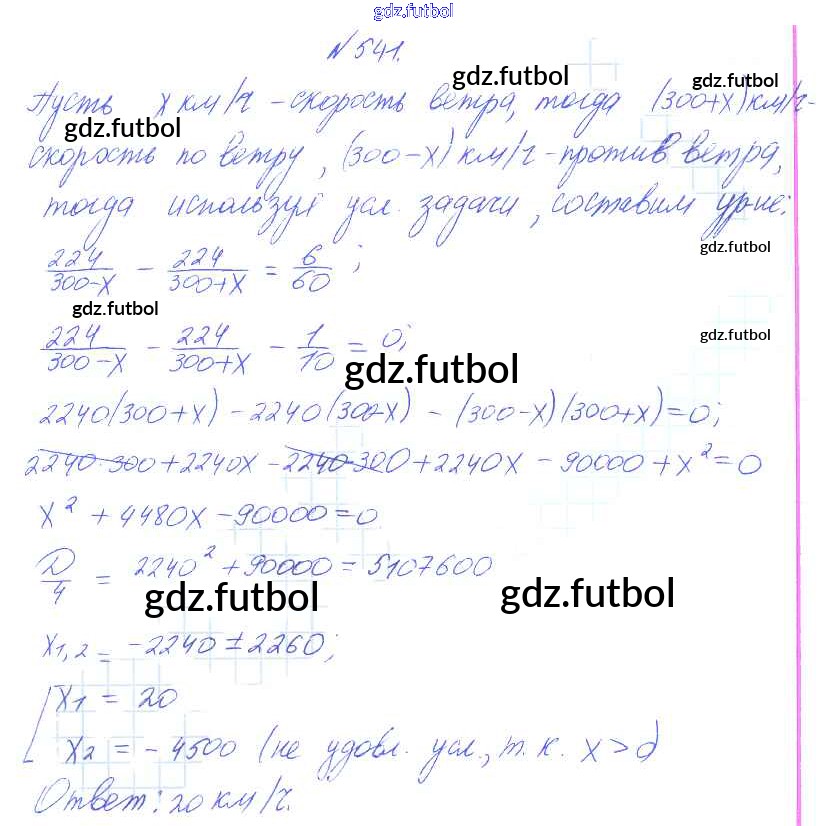 gdz.futbol
№ 541.
gdz.futbol
gdz.futbol
Пусть x км/ч - скорость ветра, тогда (300+x) км/ч -
gdz.futbol
скорость по ветру, (300-x) км/ч - против ветра,
тогда используя усл. задачи, составим ур-ие:
gdz.futbol
224/(300-x) - 224/(300+x) = 6/60 ;
gdz.futbol
gdz.futbol
224/(300-x) - 224/(300+x) - 1/10 = 0;
gdz.futbol
2240(300+x) - 2240(300-x) - (300-x)(300+x)=0;
2240·300+2240x - 2240·300+2240x - 90000+x²=0
x² + 4480x - 90000=0
D/4 = 2240² + 90000 = 5107600
gdz.futbol
gdz.futbol
x1,2 = -2240 ± 2260;
x1 = 20
x2 = - 4500 (не удовл. усл., т.к. x > 0
Ответ: 20 км/ч.